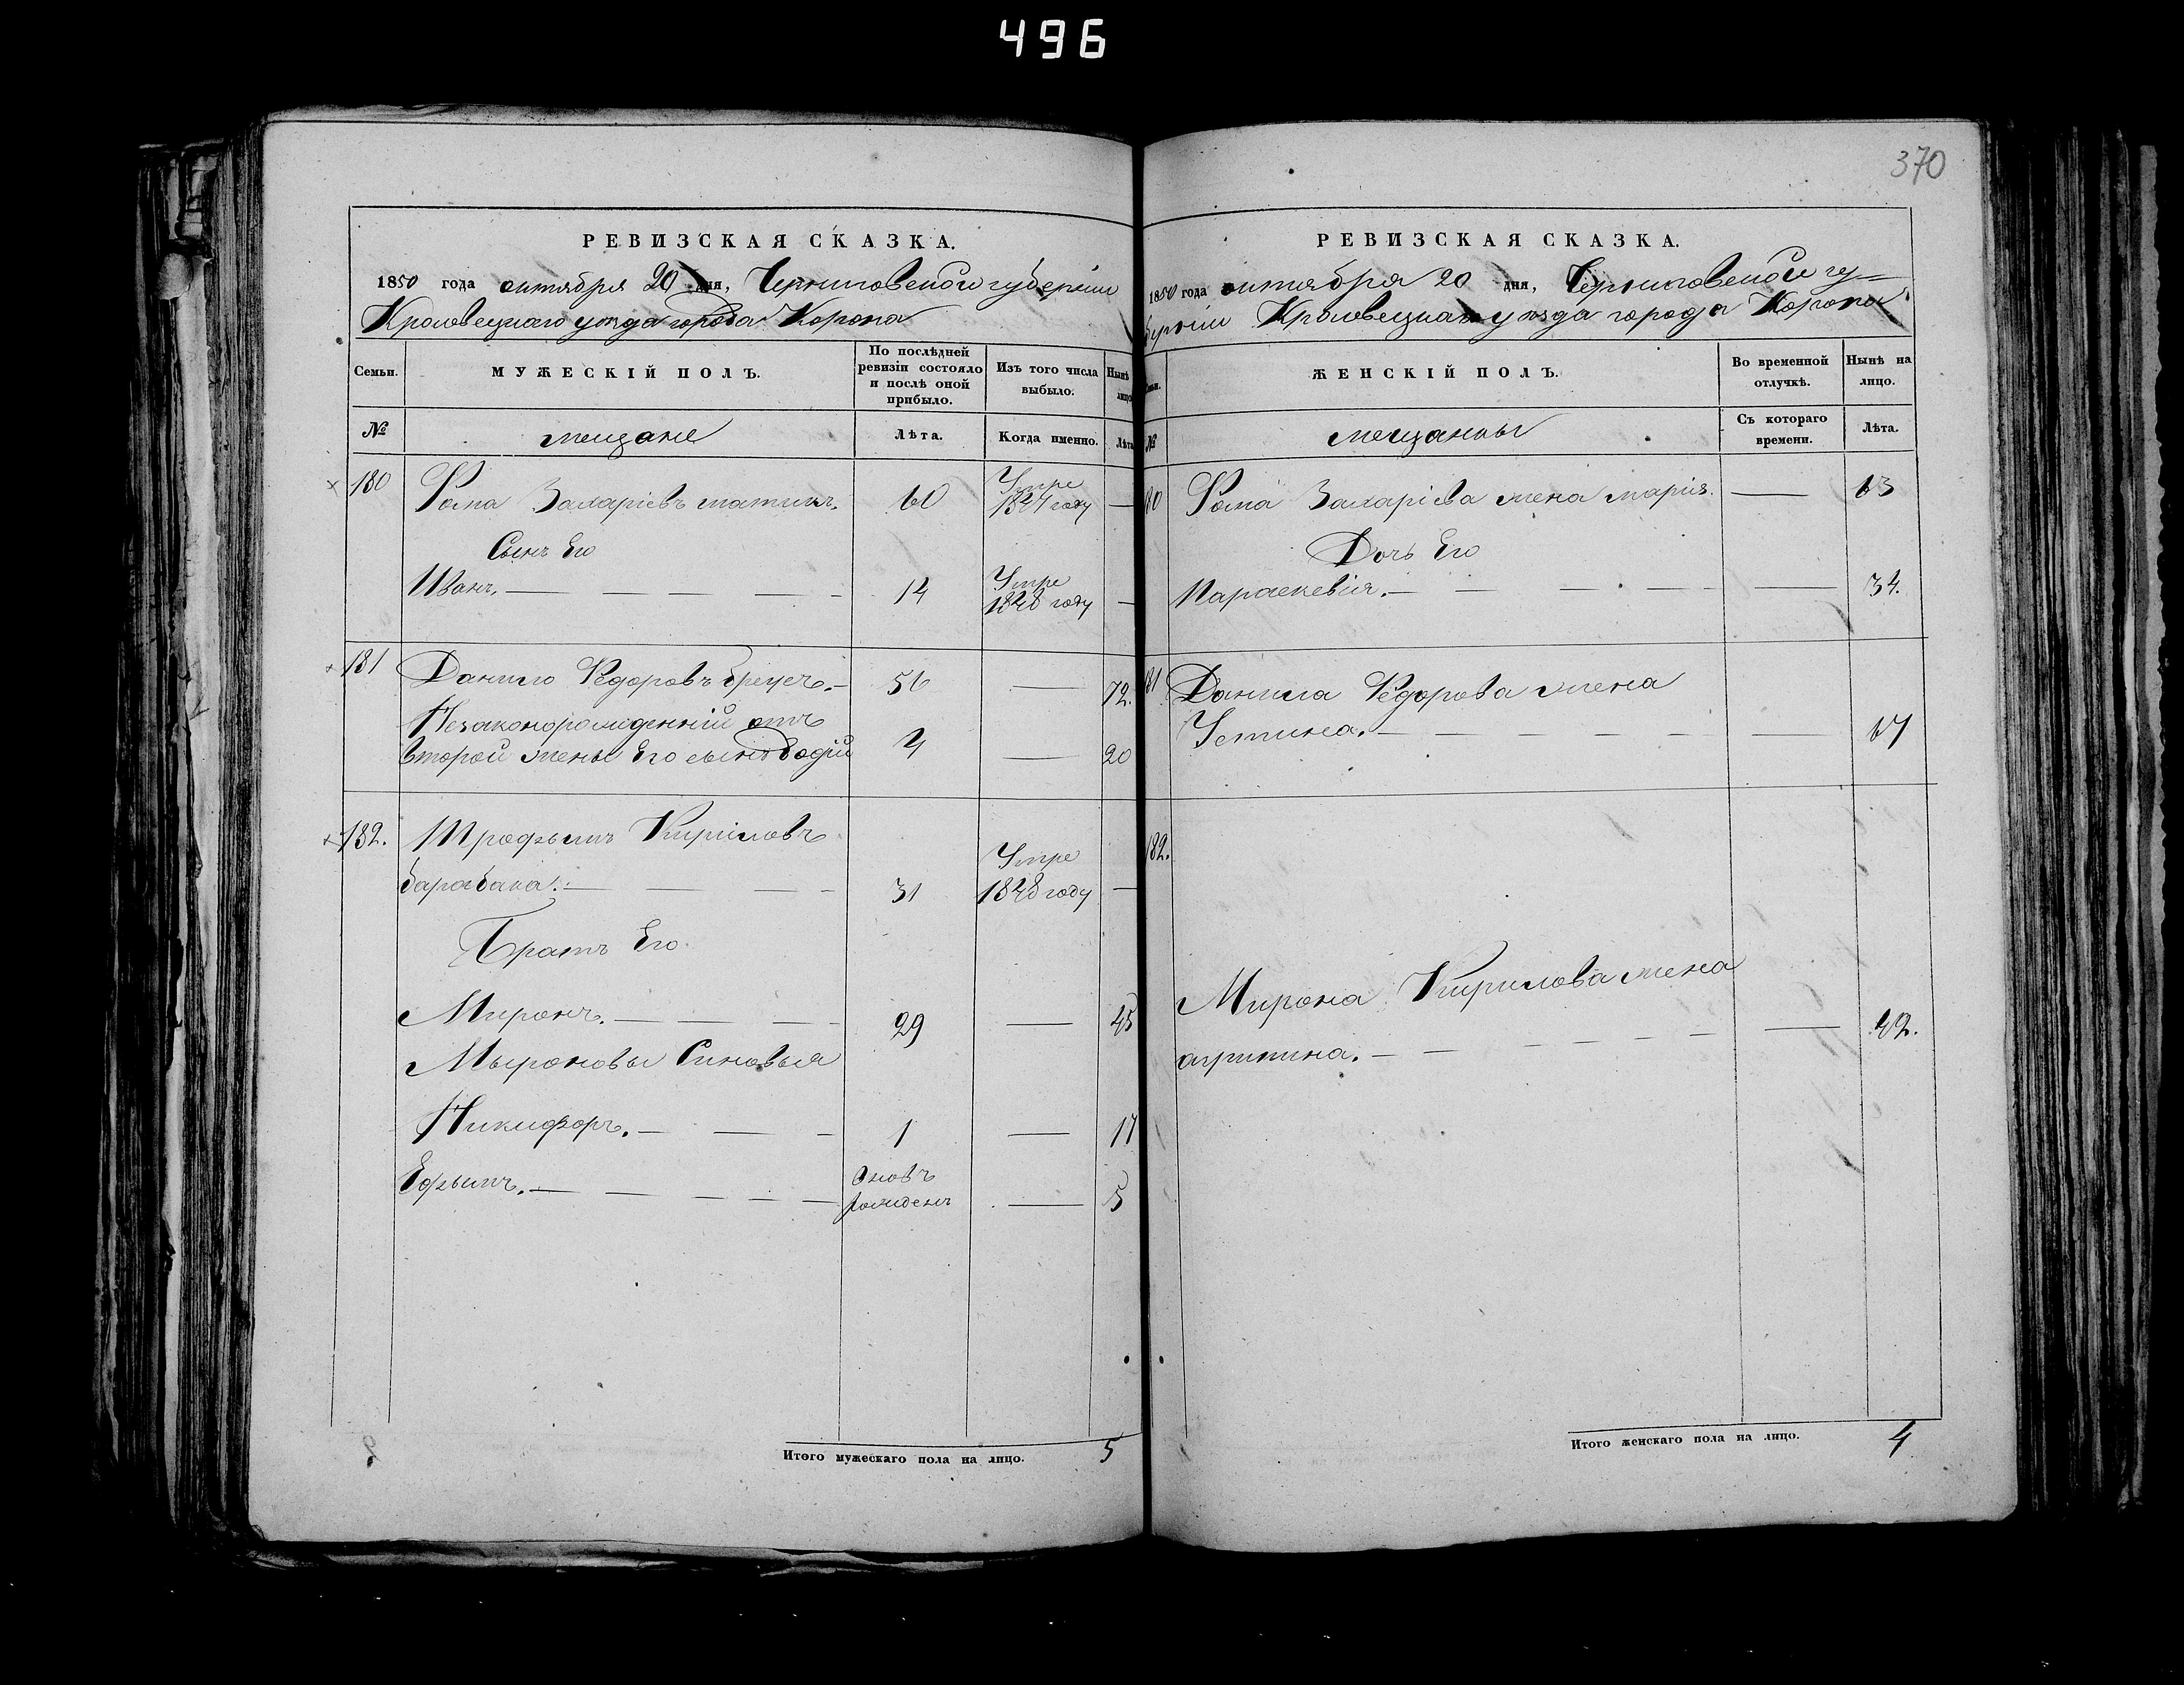 496
370
РЕВИЗСКАЯ СКАЗКА.
1850 года октября 20 дня, Черниговской губернии
Кролевецкаго уезда города Коропа
Семьи.
МУЖЕСКІЙ ПОЛЪ.
По послѣдней ревизіи состояло и послѣ оной прибыло.
Изъ того числа выбыло.
Нынѣ лицо
№
мещане
Лѣта.
Когда именно.
Лѣта
180 Фома Захаріевъ 60 Умре 1847 году —
Сынъ Его
Иванъ. — 14 Умре 1848 году —
181 Данило Федоровъ — 56 — 72.
Незаконорожденний отъ
второй жены Его сынъ 4 — 20
182. Трофымъ Кириловъ
барабаха. — 31 Умре 1848 году —
Братъ Его
Миронъ. — 29 — 45
Мыроновы Синовья
Никифоръ. — 1 — 17
Ефымъ. — вновъ рожденъ — 5
Итого мужескаго пола на лицо. 5
РЕВИЗСКАЯ СКАЗКА.
1850 года октября 20 дня, Черниговской гу-
берніи Кролевецкаго уезда города Коропа
ЖЕНСКІЙ ПОЛЪ.
Во временной отлучкѣ.
Нынѣ на лицо.
№
мещанки
Съ котораго времени.
Лѣта.
80 Фома Захаріева жена марія. — 63
Дочь Его
Параскевія. — 34.
81 Данила Федорова жена
Устина. — 67
182.
Мирона Кирилова жена
агрипина. — 42.
Итого женскаго пола на лицо. 4